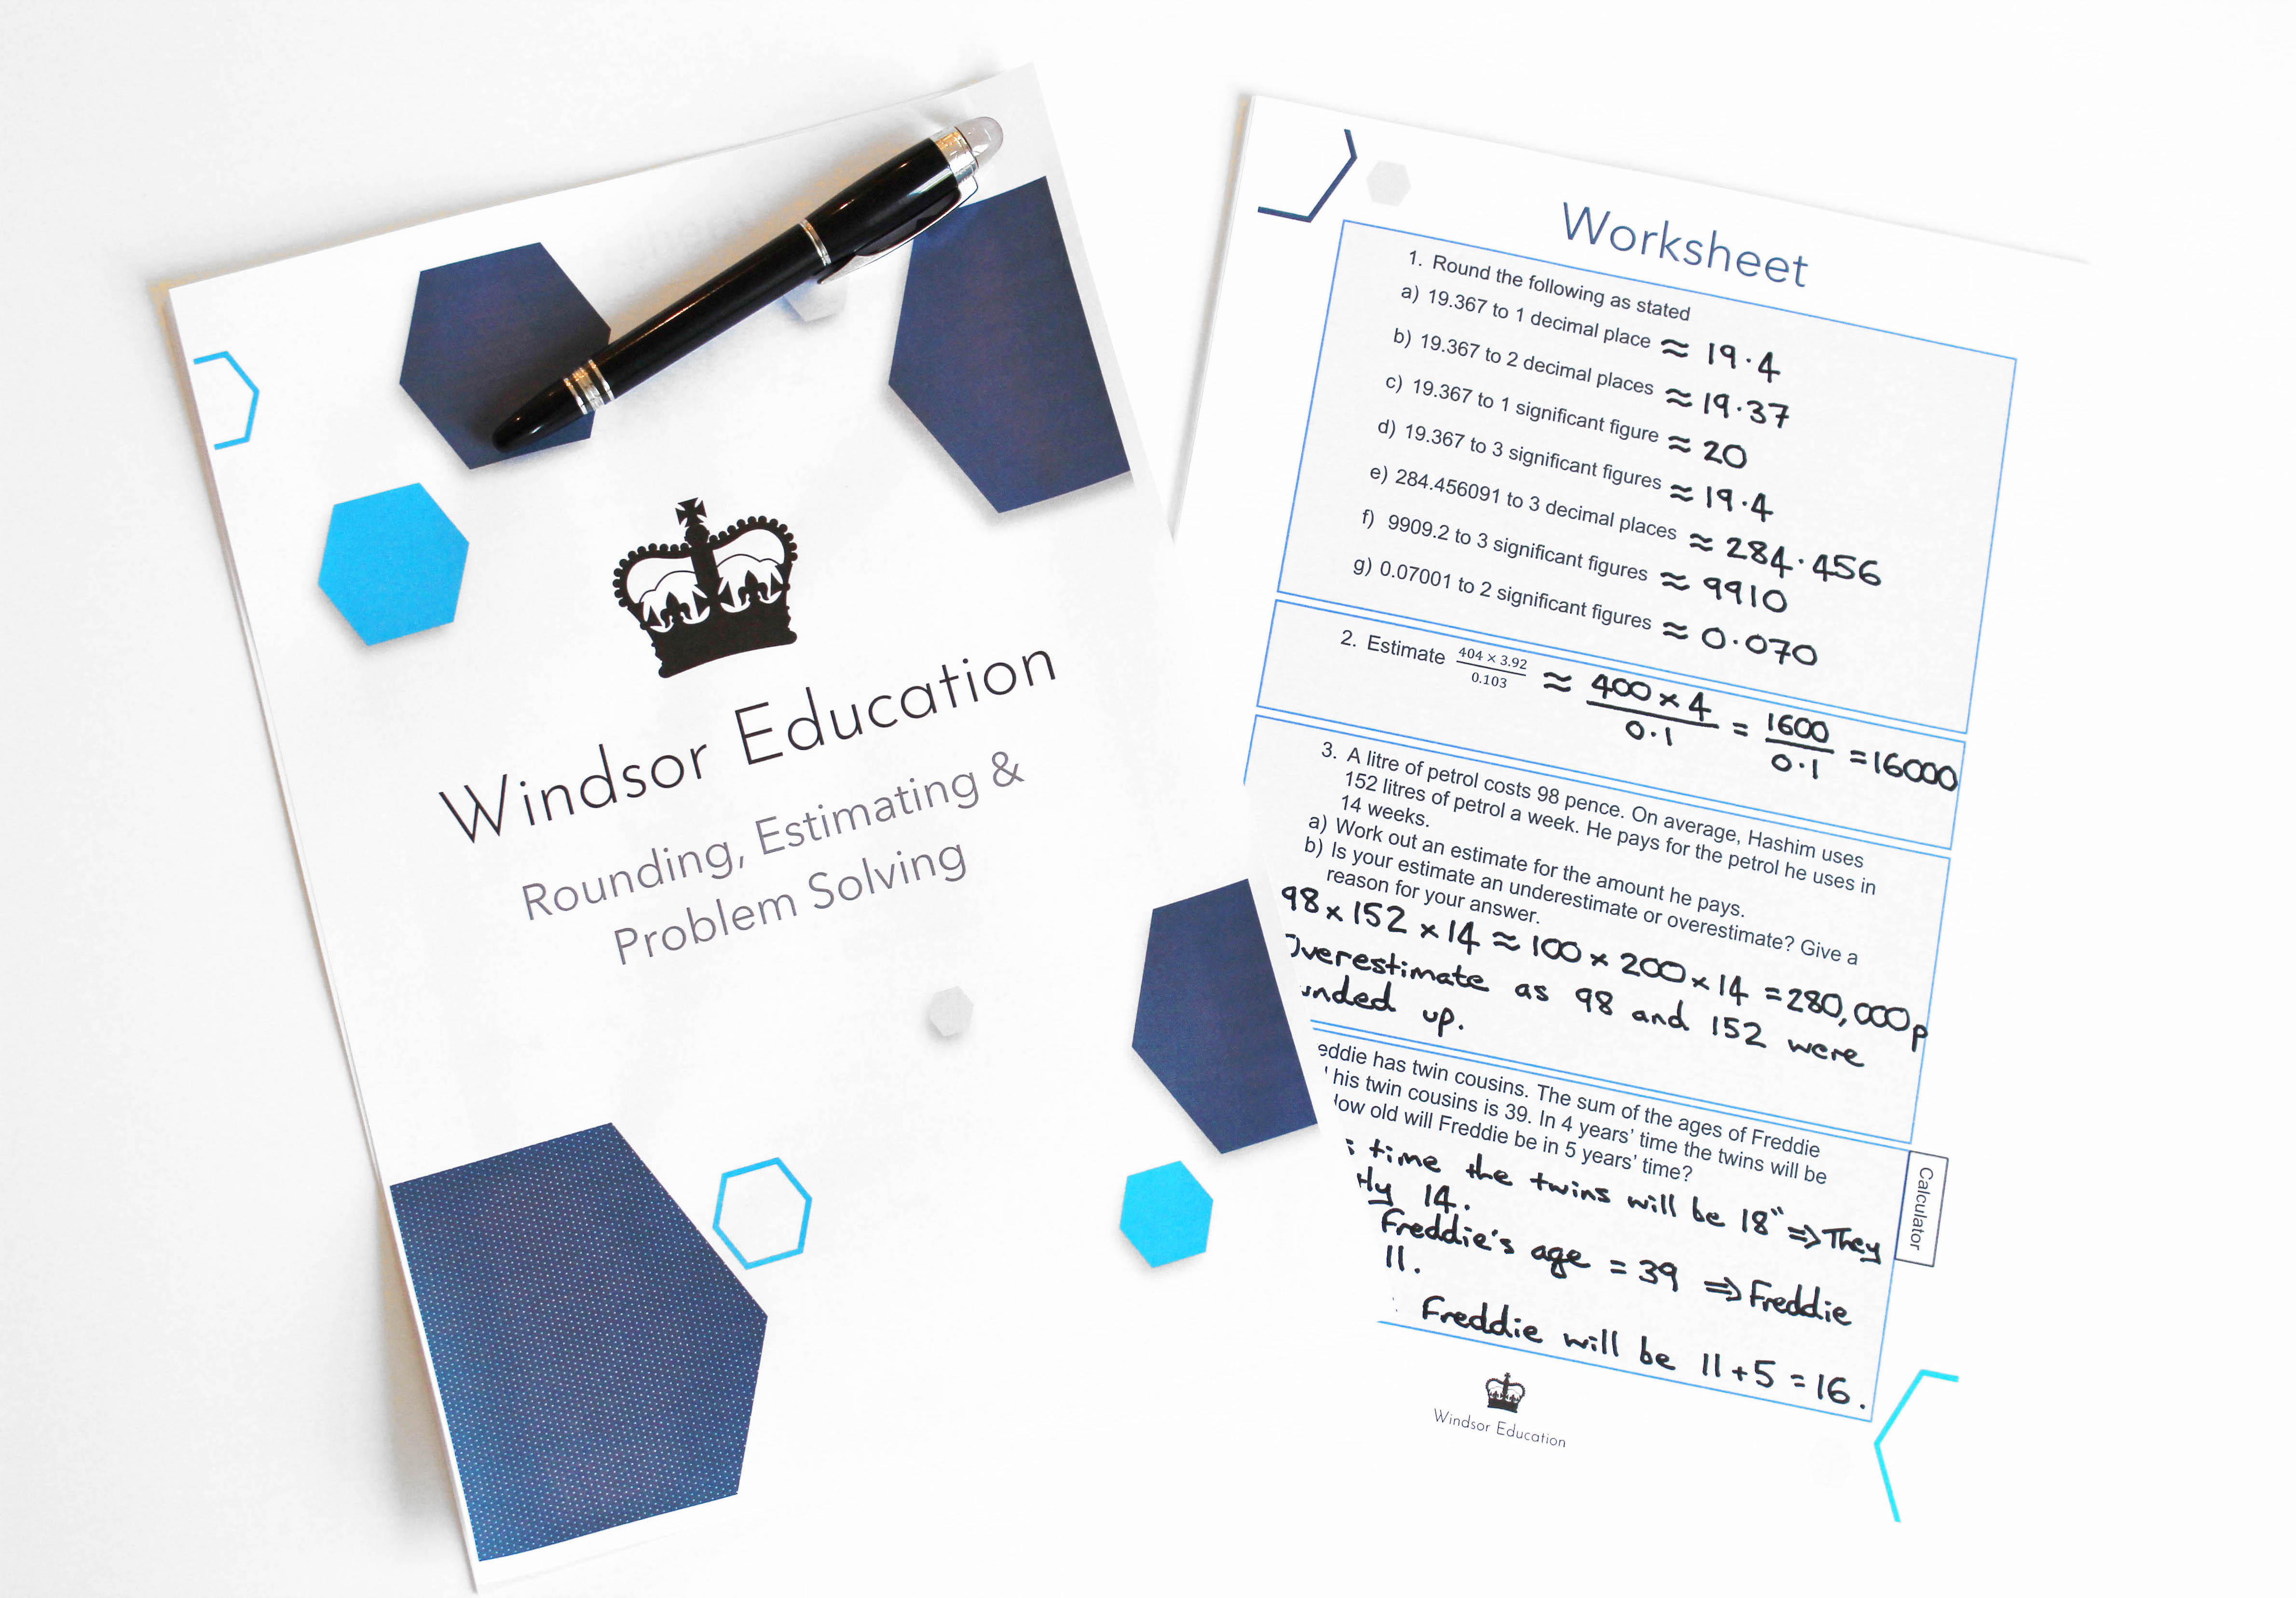 Windsor Education
Rounding, Estimating &
Problem Solving
Worksheet
1. Round the following as stated
a) 19.367 to 1 decimal place ≈ 19·4
b) 19.367 to 2 decimal places ≈ 19·37
c) 19.367 to 1 significant figure ≈ 20
d) 19.367 to 3 significant figures ≈ 19·4
e) 284.456091 to 3 decimal places ≈ 284·456
f) 9909.2 to 3 significant figures ≈ 9910
g) 0.07001 to 2 significant figures ≈ 0·070
2. Estimate (404 × 3.92)/0.103 ≈ (400 × 4)/0·1 = 1600/0·1 = 16000
3. A litre of petrol costs 98 pence. On average, Hashim uses
152 litres of petrol a week. He pays for the petrol he uses in
14 weeks.
a) Work out an estimate for the amount he pays.
b) Is your estimate an underestimate or overestimate? Give a
reason for your answer.
98 × 152 × 14 ≈ 100 × 200 × 14 = 280,000p
Overestimate as 98 and 152 were
up.
has twin cousins. The sum of the ages of Freddie
his twin cousins is 39. In 4 years' time the twins will be
old will Freddie be in 5 years' time?
time the twins will be 18" ⇒ They
14.
Freddie's age = 39 ⇒ Freddie
11.
Freddie will be 11 + 5 = 16.
Calculator
Windsor Education